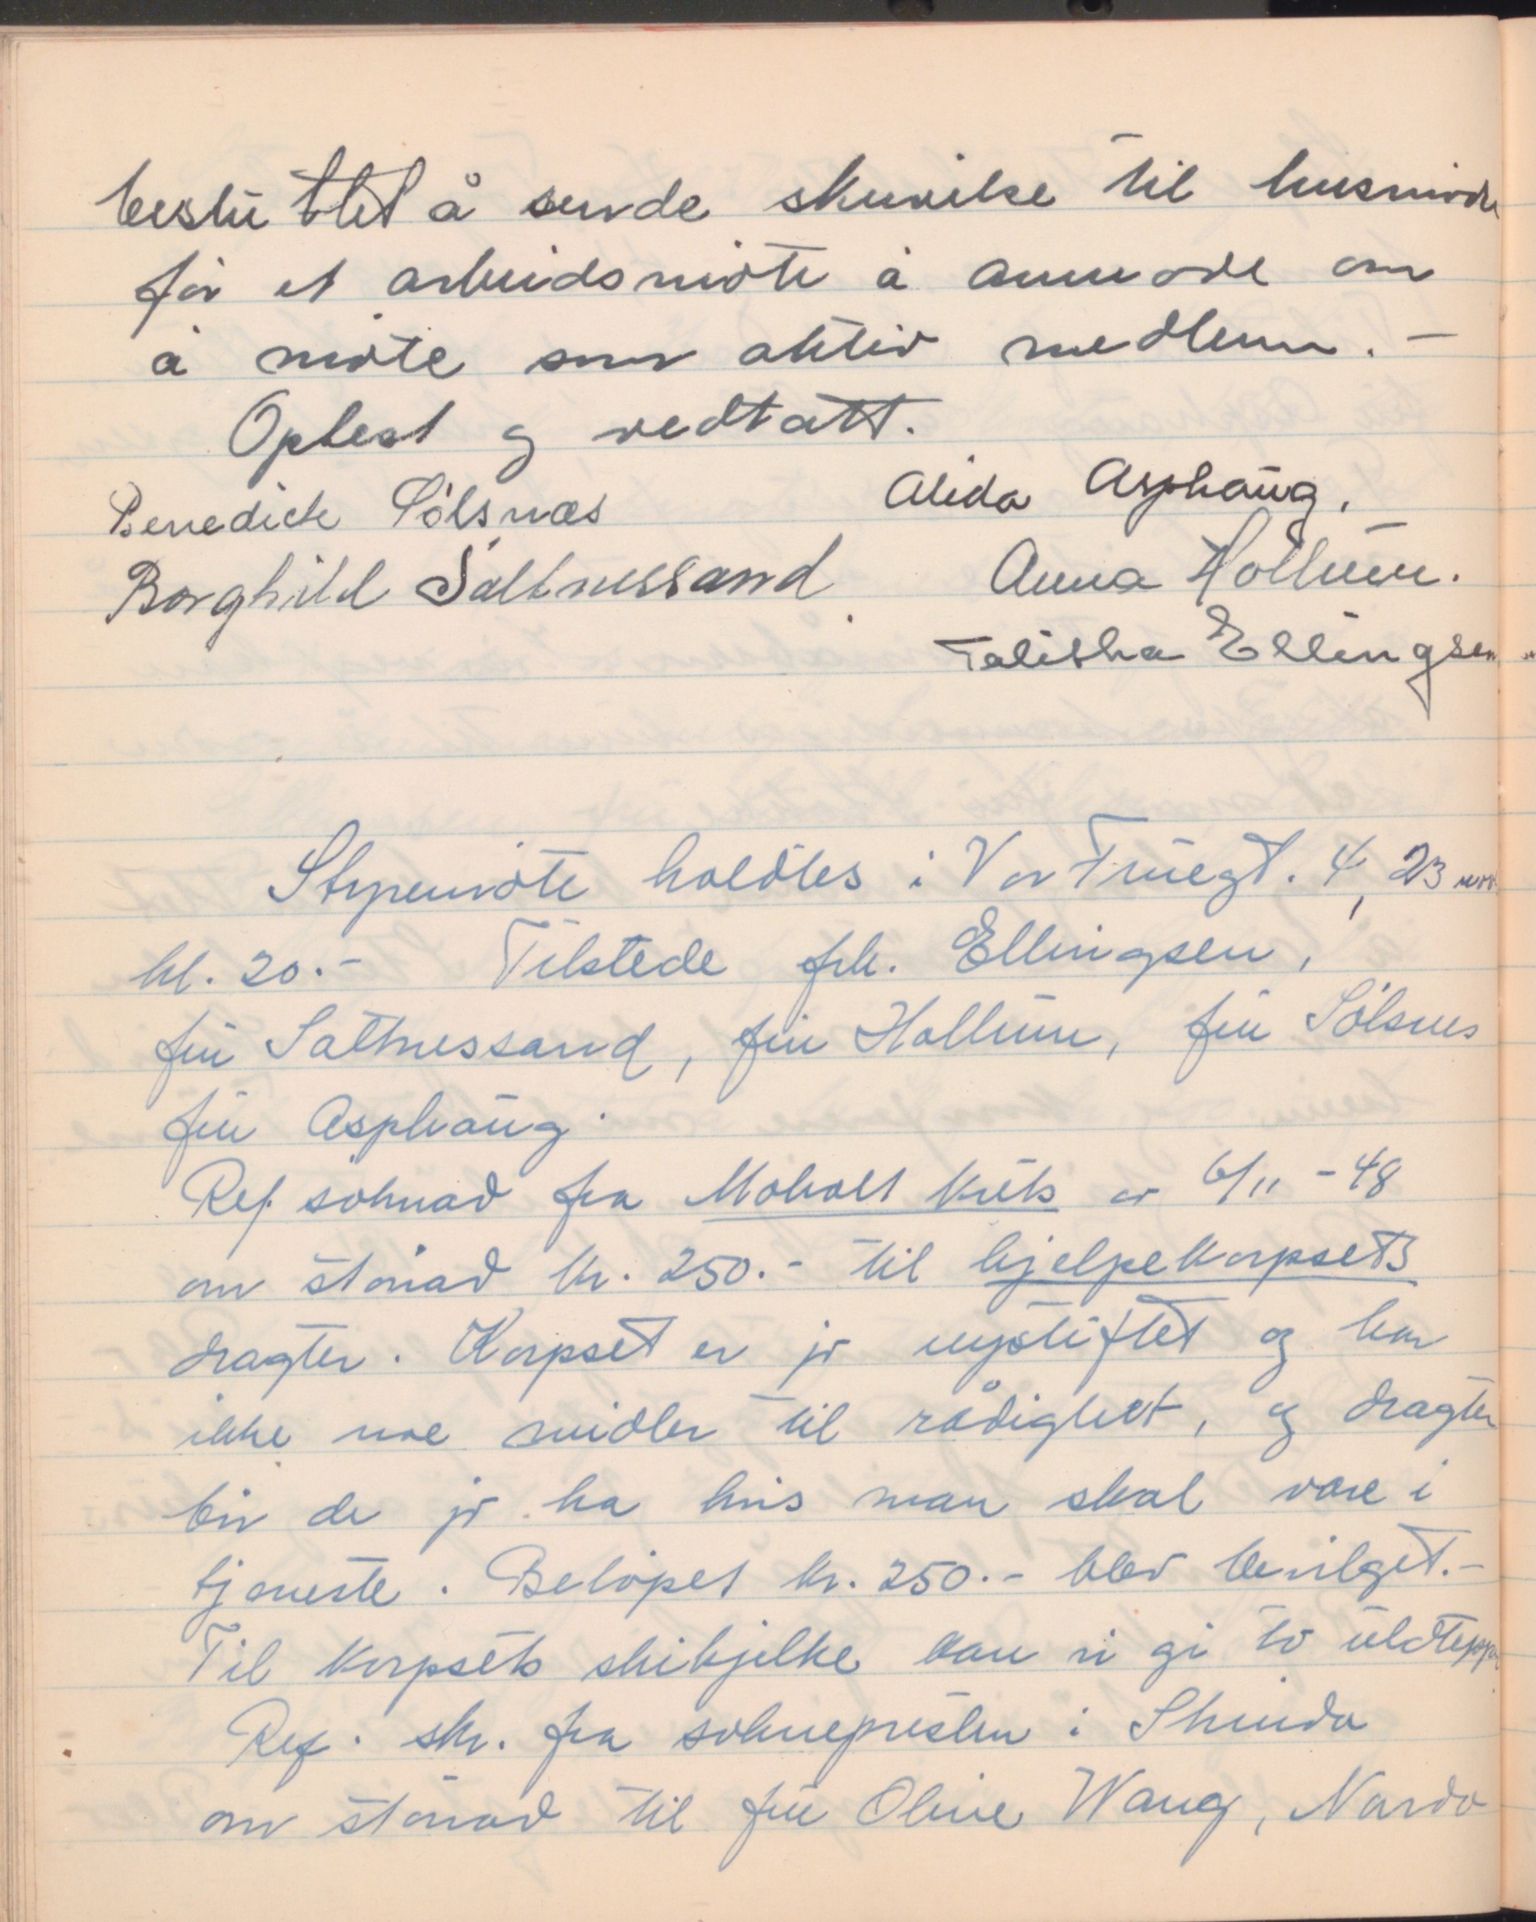 beslu ttet å sende skrivelse til husmødre
før et arbeidsmøte å anmode om
å møte som aktiv medlem. -
Oplest og vedtatt.
Benedicte Sølsnæs Alida Asphaug.
Borghild Saltnessand Anna Hollum.
Talitha Ellingsen
Styremøte holdtes i Vor Fruegt. 4, 23 nov
kl. 20.- Tilstede frk. Ellingsen,
fru Saltnessand, fru Hollum, fru Sølsnes
fru Asphaug.
Ref. søknad fra Moholt krets av 6/11 - 48
om stønad kr. 250.- til hjelpekorpsets
dragter. Korpset er jo nystiftet og har
ikke noe midler til rådighet, og dragter
bør de jo ha hvis man skal være i
tjeneste. Beløpet kr. 250.- blev bevilget.-
Til korpsets skikjelke kan vi gi to uldtepper
Ref. skr. fra soknepresten i Strinda
om stønad til fru Oline Wang, Nardo